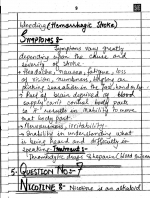 bleeding (Hemorrhagic Stroke)
SYMPTOMS 8-
Symptoms vary greatly
depending upon the cause and
severity of stroke.
→ Headache, nausea, fatigue, loss
of vision, numbness,
pricking sensation in the foot, hand or
→ Part of brain deprived of blood
supply can't control body parts
so it results in inability to move
that body part.
→ Nervousness, irritability.
→ Inability in understanding what
is being heard and difficulty in
speaking. Treatment :-
Thrombolytic drugs, heparin, blood
5- QUESTION NO:- 7
NICOTINE 8- Nicotine is an alkaloid